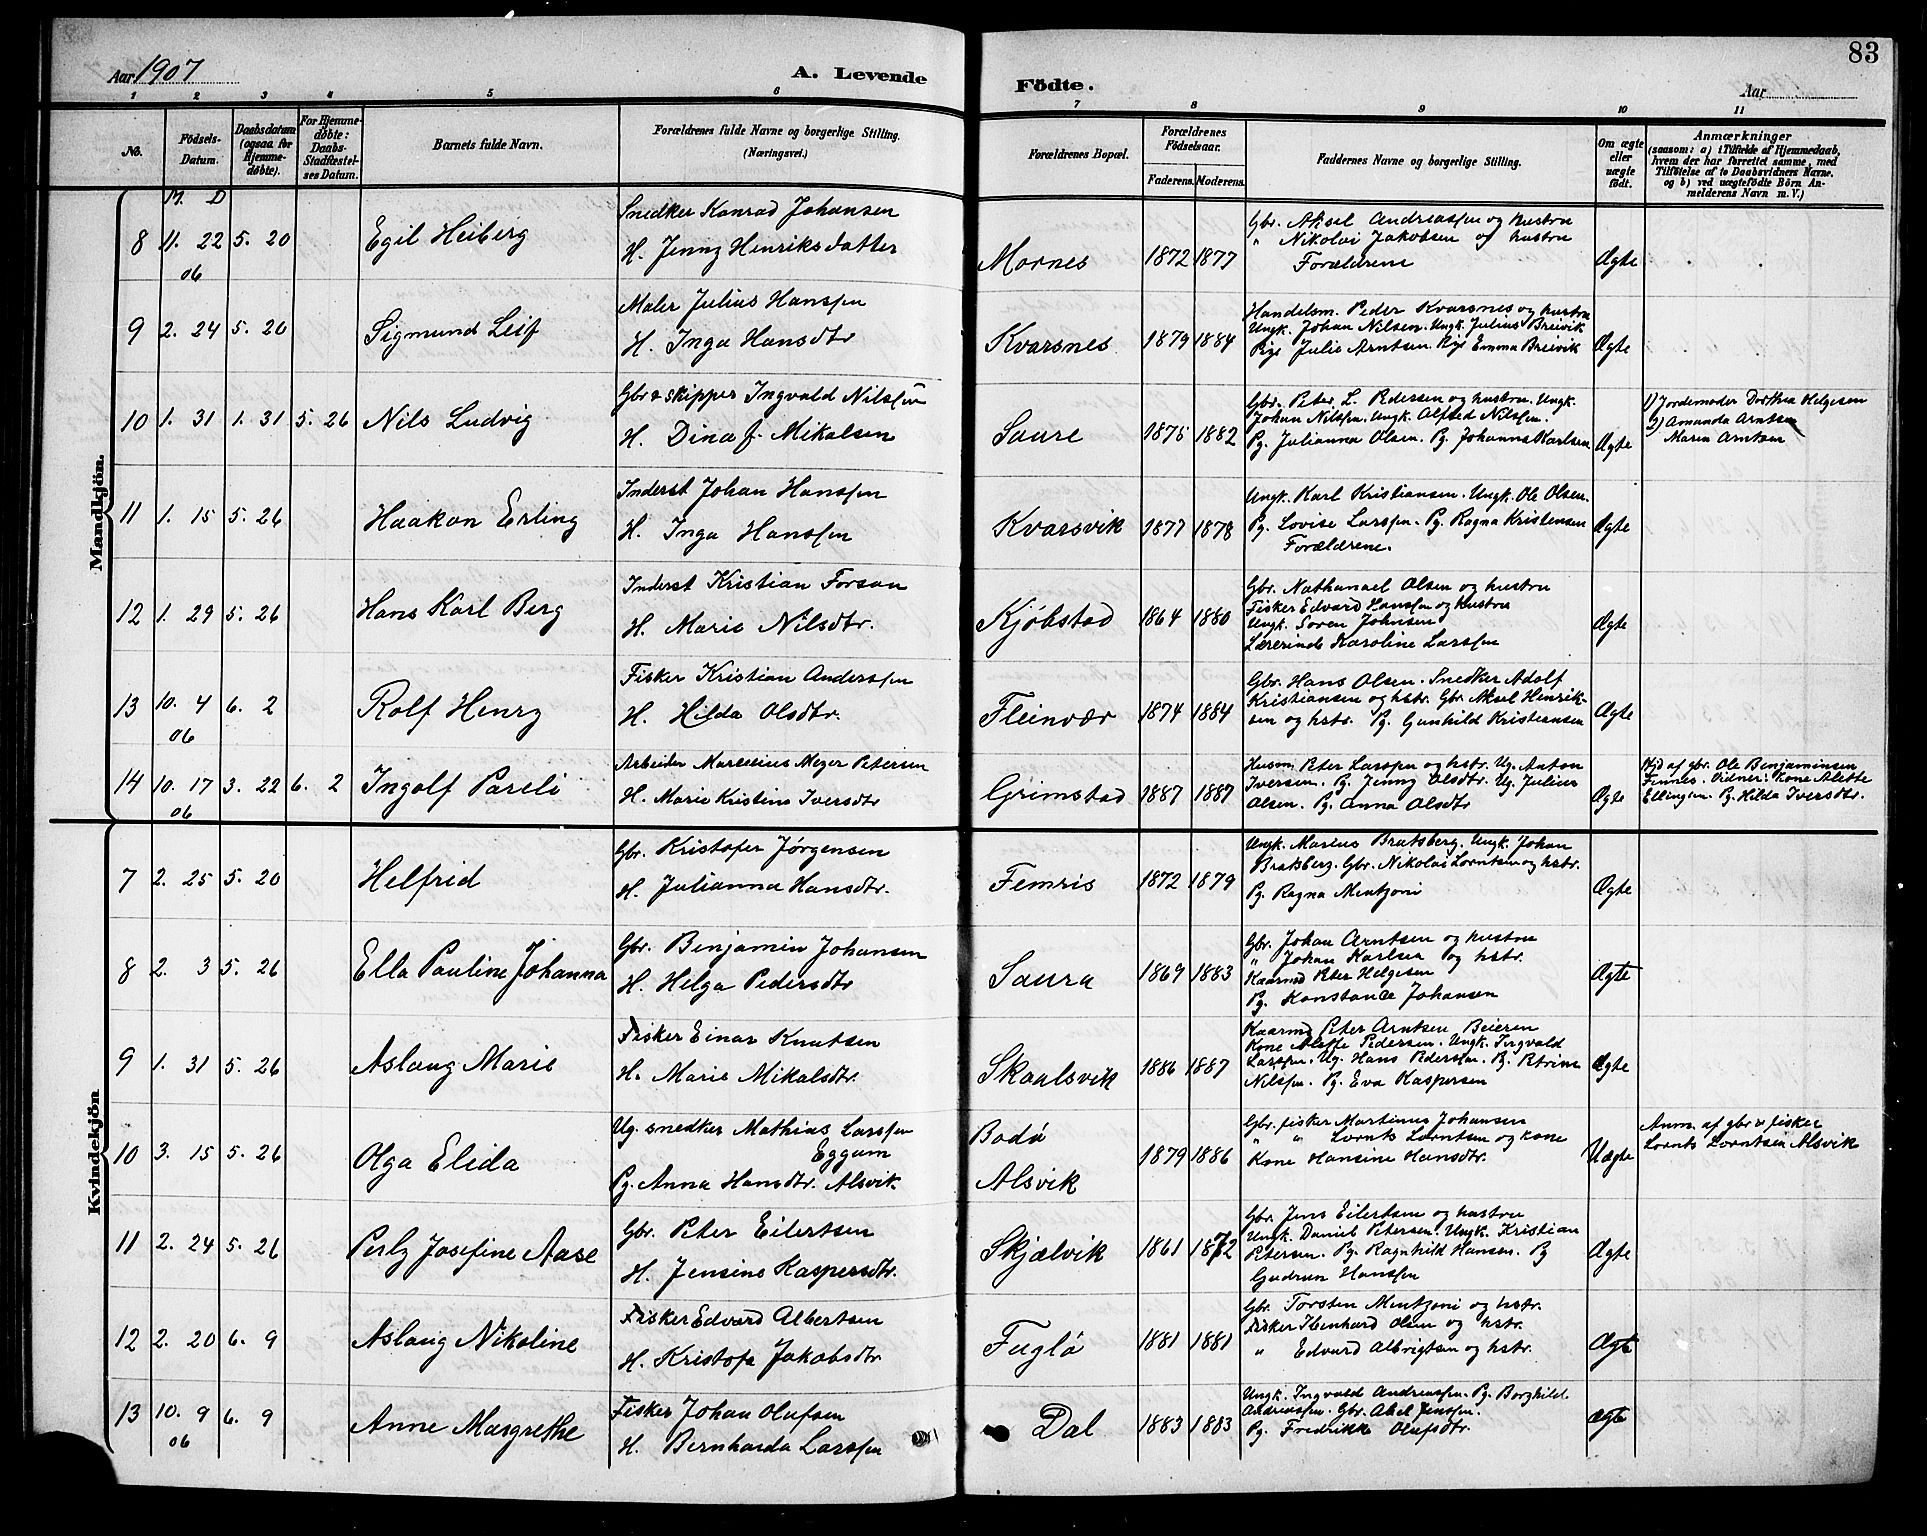 83
Aar 1907
A. Levende
Födte.
Aar
1 2 3 4 5 6 7 8 9 10 11
No.
Födsels-Datum.
Daabsdatum (ogsaa for Hjemmedöbte).
For Hjemmedöbte: Daabs-Stadfæstelses Datum.
Barnets fulde Navn.
Forældrenes fulde Navne og borgerlige Stilling.
(Næringsvei.)
Forældrenes Bopæl.
Forældrenes Födselsaar.
Faderens. Moderens.
Faddernes Navne og borgerlige Stilling.
Om ægte eller uægte födt.
Anmærkninger
(saasom: a) i Tilfælde af Hjemmedaab, hvem der har forrettet samme, med Tilföielse af to Daabsvidners Navne. og b) ved uægtefödte Börn Anmelderens Navn m. V.)
M. D
Mandkjön.
8 11. 22 06 5. 20 Egil Heiberg
Snedker Konrad Johansen
H. Jenny Henriksdatter
Mornes 1872 1877
Gbr. Aksel Andreassen og hustru
" Nikolai Jakobsen og hustru
Forældrene
Ægte
9 2. 24 5. 20 Sigmund Leif
Maler Julius Hanssen
H. Inga Hansdtr
Kvarsnes 1879 1884
Handelsm. Peder Kvarsnes og hustru
Ungk. Johan Nilsen. Ungk. Julius Breivik
Pige Julie Arntsen. Pige Emma Breivik
Ægte
10 1. 31 1. 31 5. 26 Nils Ludvig
Gbr & skipper Ingvald Nilssen
H. Dina J. Mikalsen
Saure 1875 1882
Gbr. Peter L. Pedersen og hustru. Ungk.
Johan Nilssen. Ungk. Alfred Nilssen.
Pg. Julianna Olsen. Pg. Johanna Karlsen
Ægte
1) Jordemoder Dorthea Helgesen
2) Amanda Arntsen
Maren Arntsen
11 1. 15 5. 26 Haakon Erling
Inderst Johan Hanssen
H. Inga Hanssen
Kvarsvik 1877 1878
Ungk. Karl Kristiansen. Ungk. Ole Olsen.
Pg. Lovise Larssen. Pg. Ragna Kristensen
Forældrene.
Ægte
12 1. 29 5. 26 Hans Karl Berg
Inderst Kristian Forsan
H. Marie Nilsdtr.
Kjøbstad 1864 1880
Gbr. Nathanael Olsen og hustru
Fisker Edvard Hanssen og hustru
Ungk. Soren Johnsen
Lærerinde Karoline Larssen
Ægte
13 10. 4 06 6. 2 Rolf Henry
Fisker Kristian Anderssen
H. Hilda Olsdtr.
Fleinvær 1874 1884
Gbr. Hans Olsen. Snedker Adolf
Kristiansen og hstr. Gbr. Aksel Henrik-
sen og hstr. Pg. Gunhild Kristiansen
Ægte
14 10. 17 06 3. 22 6. 2 Ingolf Pareli
Arbeider Marcelius Meyer Petersen
H. Marie Kristine Iversdtr
Grimstad 1887 1887
Husm. Peter Larssen og hstr. Ug. Anton
Iversen. Pg. Jenny Olsdtr. Ug. Julius
Olsen. Pg. Anna Olsdtr
Ægte
Hjd af gbr. Ole Benjaminsen
Femris. Vidner: Kone Alette
Ellingsen. Pg. Hilda Iversdtr.
Kvindekjön
7 2. 25 5. 20 Helfrid
Gbr. Kristofer Jørgensen
H. Julianna Hansdtr.
Femris 1872 1879
Ungk. Marius Bratsberg. Ungk. Johan
Bratsberg. Gbr. Nikolai Lorntsen og hstr.
Pg. Ragna Mentzoni
Ægte
8 2. 3 5. 26 Ella Pauline Johanna
Gbr. Benjamin Johansen
H. Helga Pedersdtr
Saura 1869 1883
Gbr. Johan Arntsen og hustru
" Johan Karlsen og hstr.
Kaarmd Peter Helgesen
Pg. Konstance Johansen
Ægte
9 1. 31 5. 26 Aslaug Marie
Fisker Einar Knutsen
H. Marie Mikalsdtr.
Skaalsvik 1886 1887
Kaarmd Peter Arntsen Beieren
Kone Aleffe Pedersen. Ungk. Ingvald
Larssen. Ug. Hans Pedersen. Pg. Petrine
Nilssen. Pg. Eva Kaspersen
Ægte
10 3. 15 5. 26 Olga Elida
Ug. snedker Mathias Larssen
Eggum
Pg. Anna Hansdtr. Alsvik.
Bodø
Alsvik
1879 1886
Gbr. fisker Martinus Johansen
" " Lornts Lorntsen og kone
Kone Hansine Hansdtr.
Uægte
Anm. af gbr & fisker
Lornts Lorntsen Alsvik
11 2. 24 5. 26 Perly Josefine Aase
Gbr. Peter Eilertsen
H. Jensine Kaspersdtr.
Skjælvik 1861 1872
Gbr. Jens Eilertsen og hustru
Ungk. Daniel Petersen. Ungk. Kristian
Petersen. Pg. Ragnhild Hansen. Pg
Gudrun Hanssen
Ægte
12 2. 20 6. 9 Aslaug Nikoline
Fisker Edvard Albertsen
H. Kristofa Jakobsdtr.
Fuglø 1881 1881
Gbr. Torsten Mentzoni og hstr.
Fisker Ibenhard Olsen og hstr.
" Edvard Albrigtsen og hstr.
Ægte
13 10. 9 06 6. 9 Anne Margrethe
Fisker Johan Olufsen
H. Bernharda Larssen
Dal 1883 1883
Ungk. Ingvald Andreassen. Pg. Borghild
Andreassen. Gbr. Aksel Jenssen.
Pg. Fredrikke Olufsdtr.
Ægte